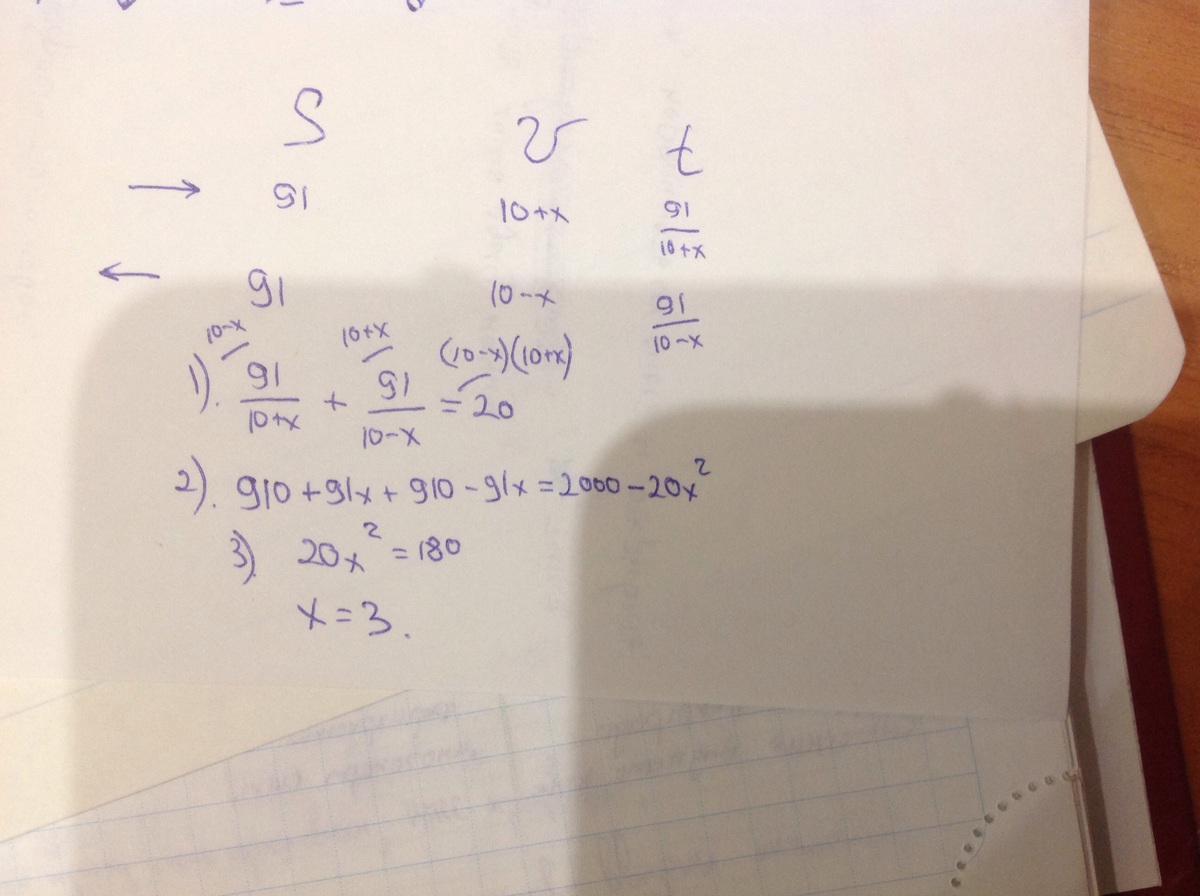 S v t
→ 91 10+x 91/(10+x)
← 91 10-x 91/(10-x)
10-x 10+x (10-x)(10+x)
1). 91/(10+x) + 91/(10-x) = 20
2). 910+91x+910-91x=2000-20x²
3) 20x²=180
x=3.